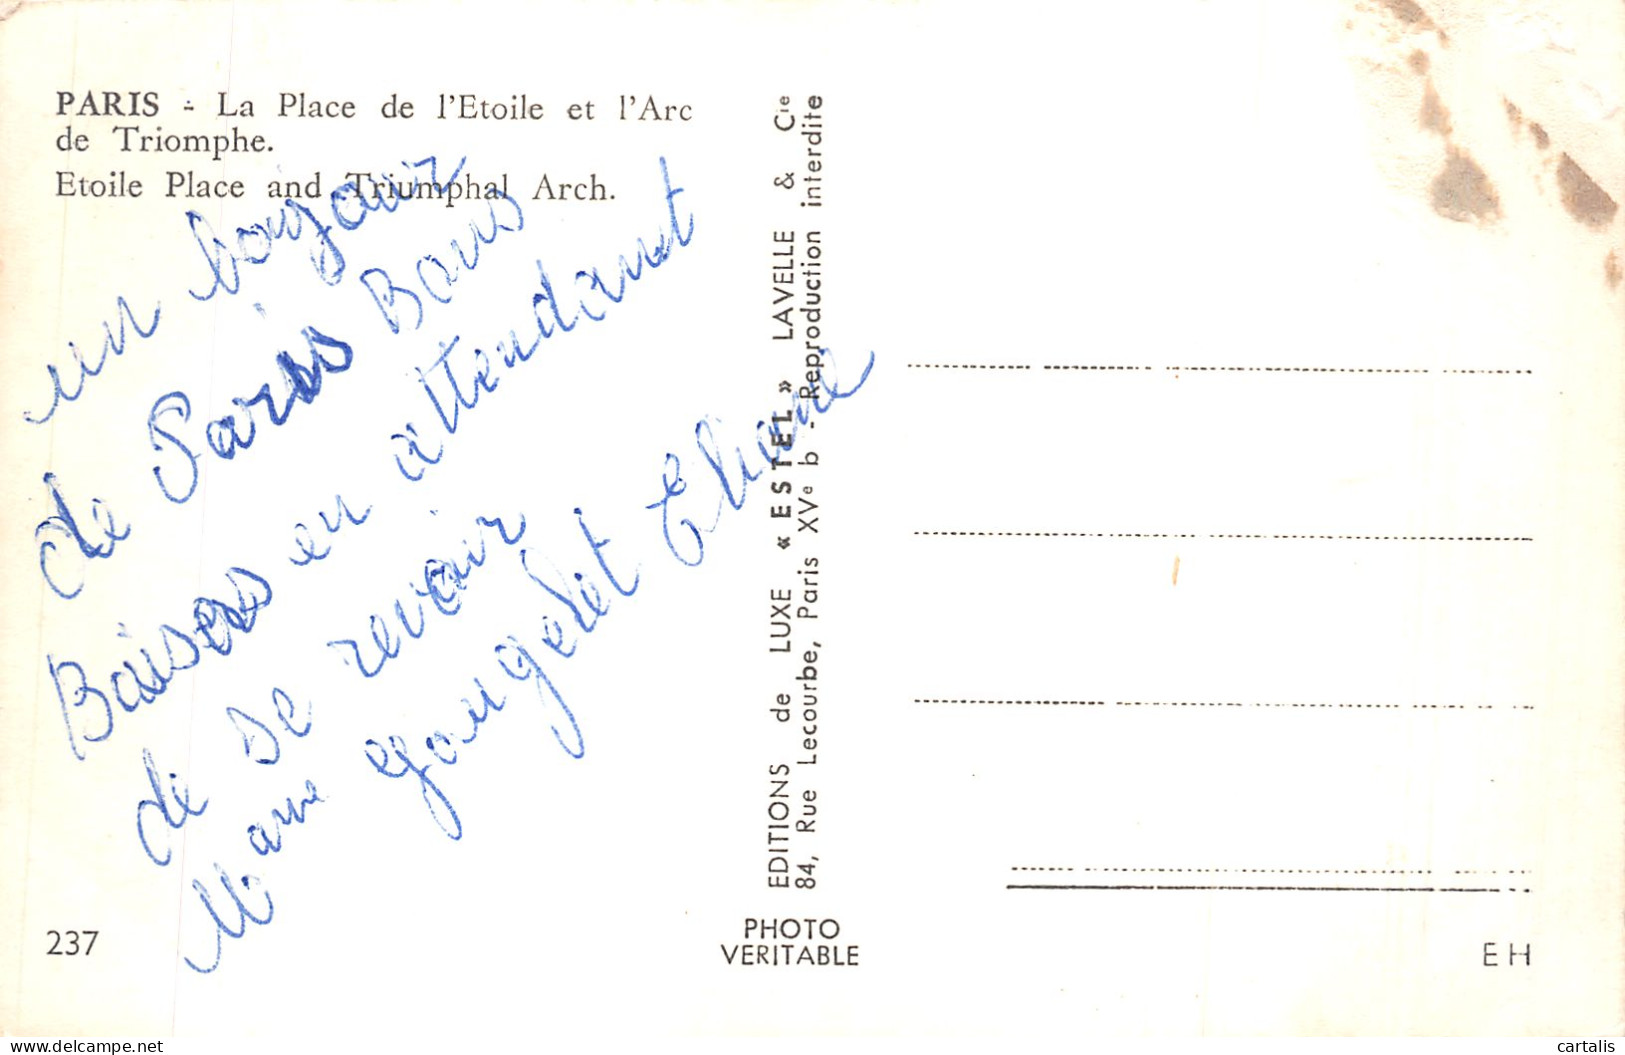 PARIS - La Place de l'Etoile et l'Arc
de Triomphe.
Etoile Place and Triumphal Arch.
un bonjour
de Paris Bons
Baisers en attendant
de se revoir
Eliane
237
EDITIONS de LUXE « ESTEL » LAVELLE & Cie
84, Rue Lecourbe, Paris XVe b - Reproduction interdite
PHOTO
VERITABLE
EH
www.delcampe.net
cartalis